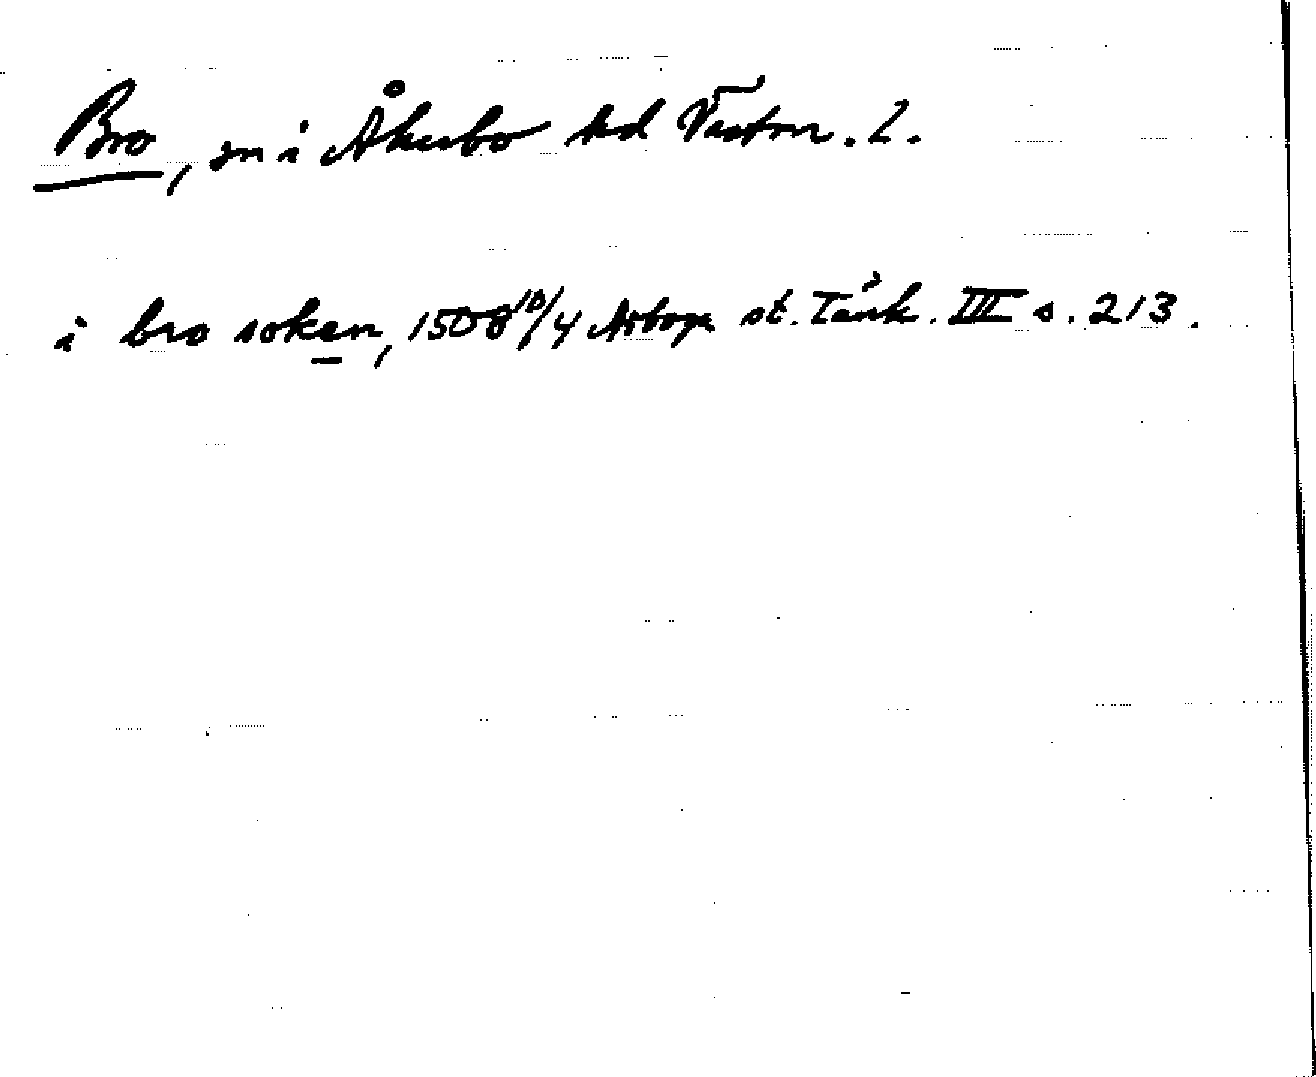 Bro, sn i Åkerbo hd Västm. l.
i bro soken, 1508 10/4 Arboga st. Tänk. III s. 213.